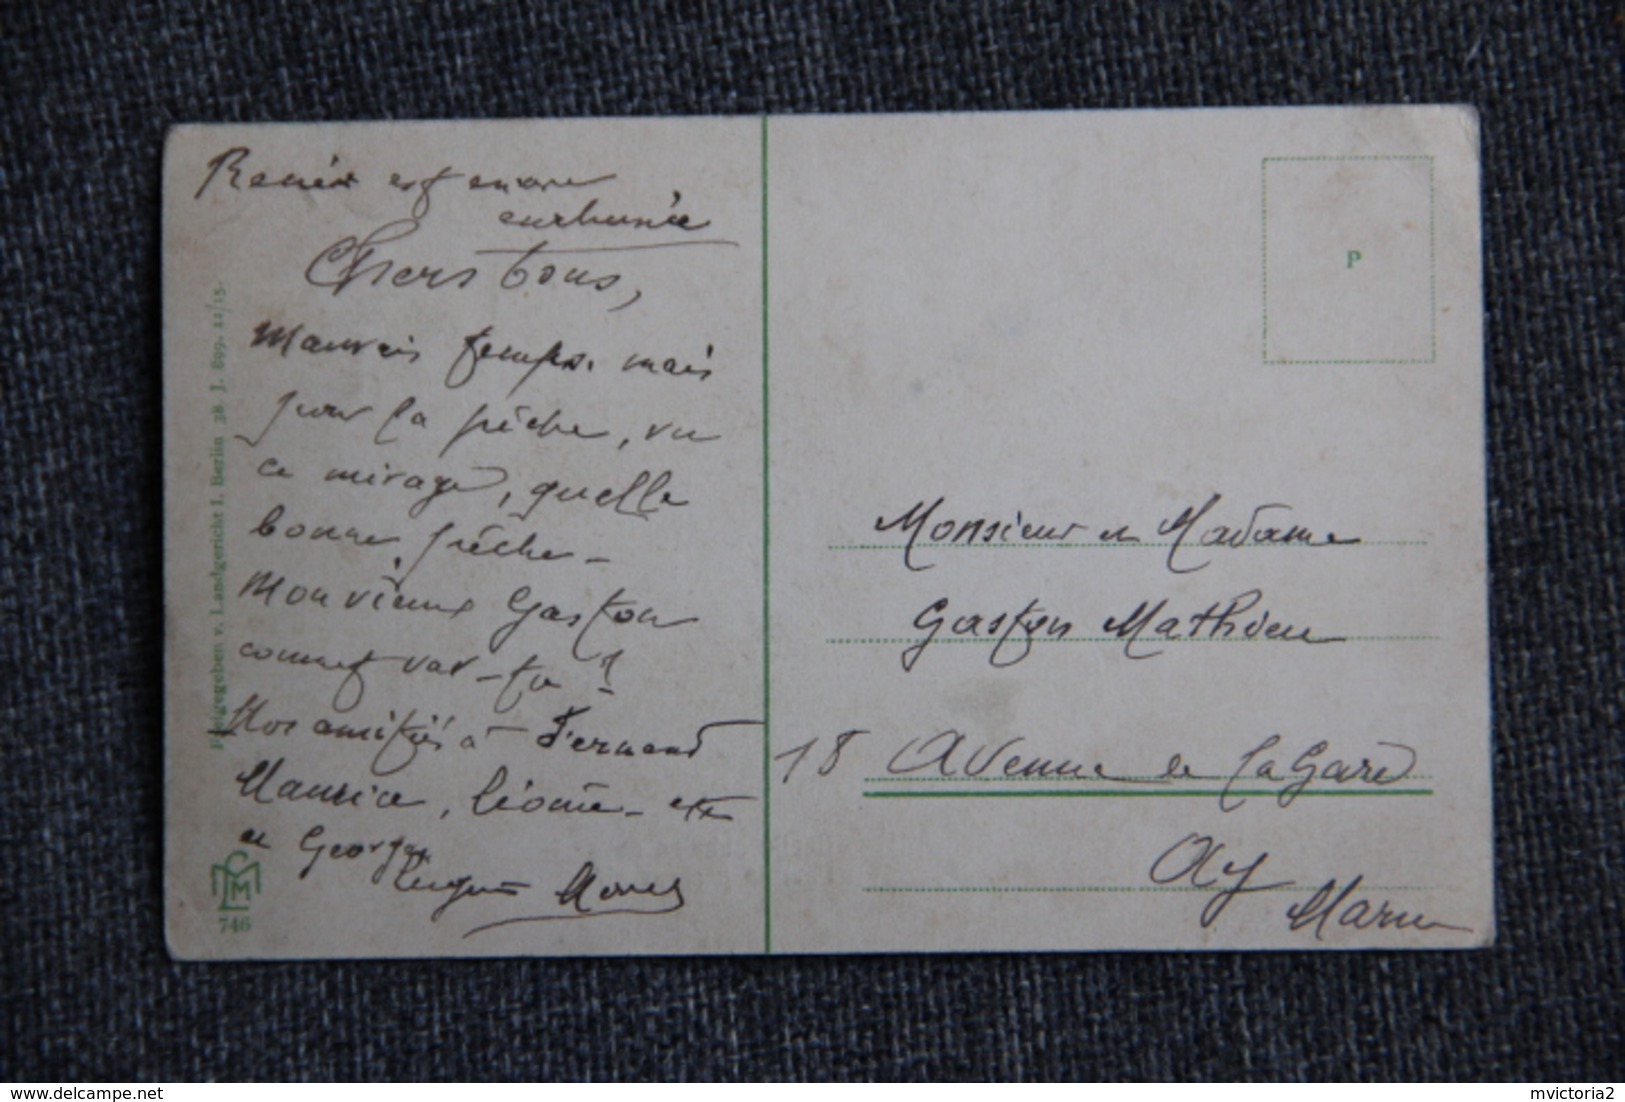 Renée est encore
enrhumée
Chers tous,
Mauvais temps. mais
pour la pêche, vu
ce mirage, quelle
bonne pêche -
Mon vieux Gaston
comment vas-tu ?
Nos amitiés à Fernand
Maurice, Léonie - etc
et Georges
Freigegeben v. Landgericht I. Berlin 38. J. 899. 11/15.
746
P
Monsieur et Madame
Gaston Mathieu
18 Avenue de la Gare
Ay
Marne
delcampe.net
mvictoria2